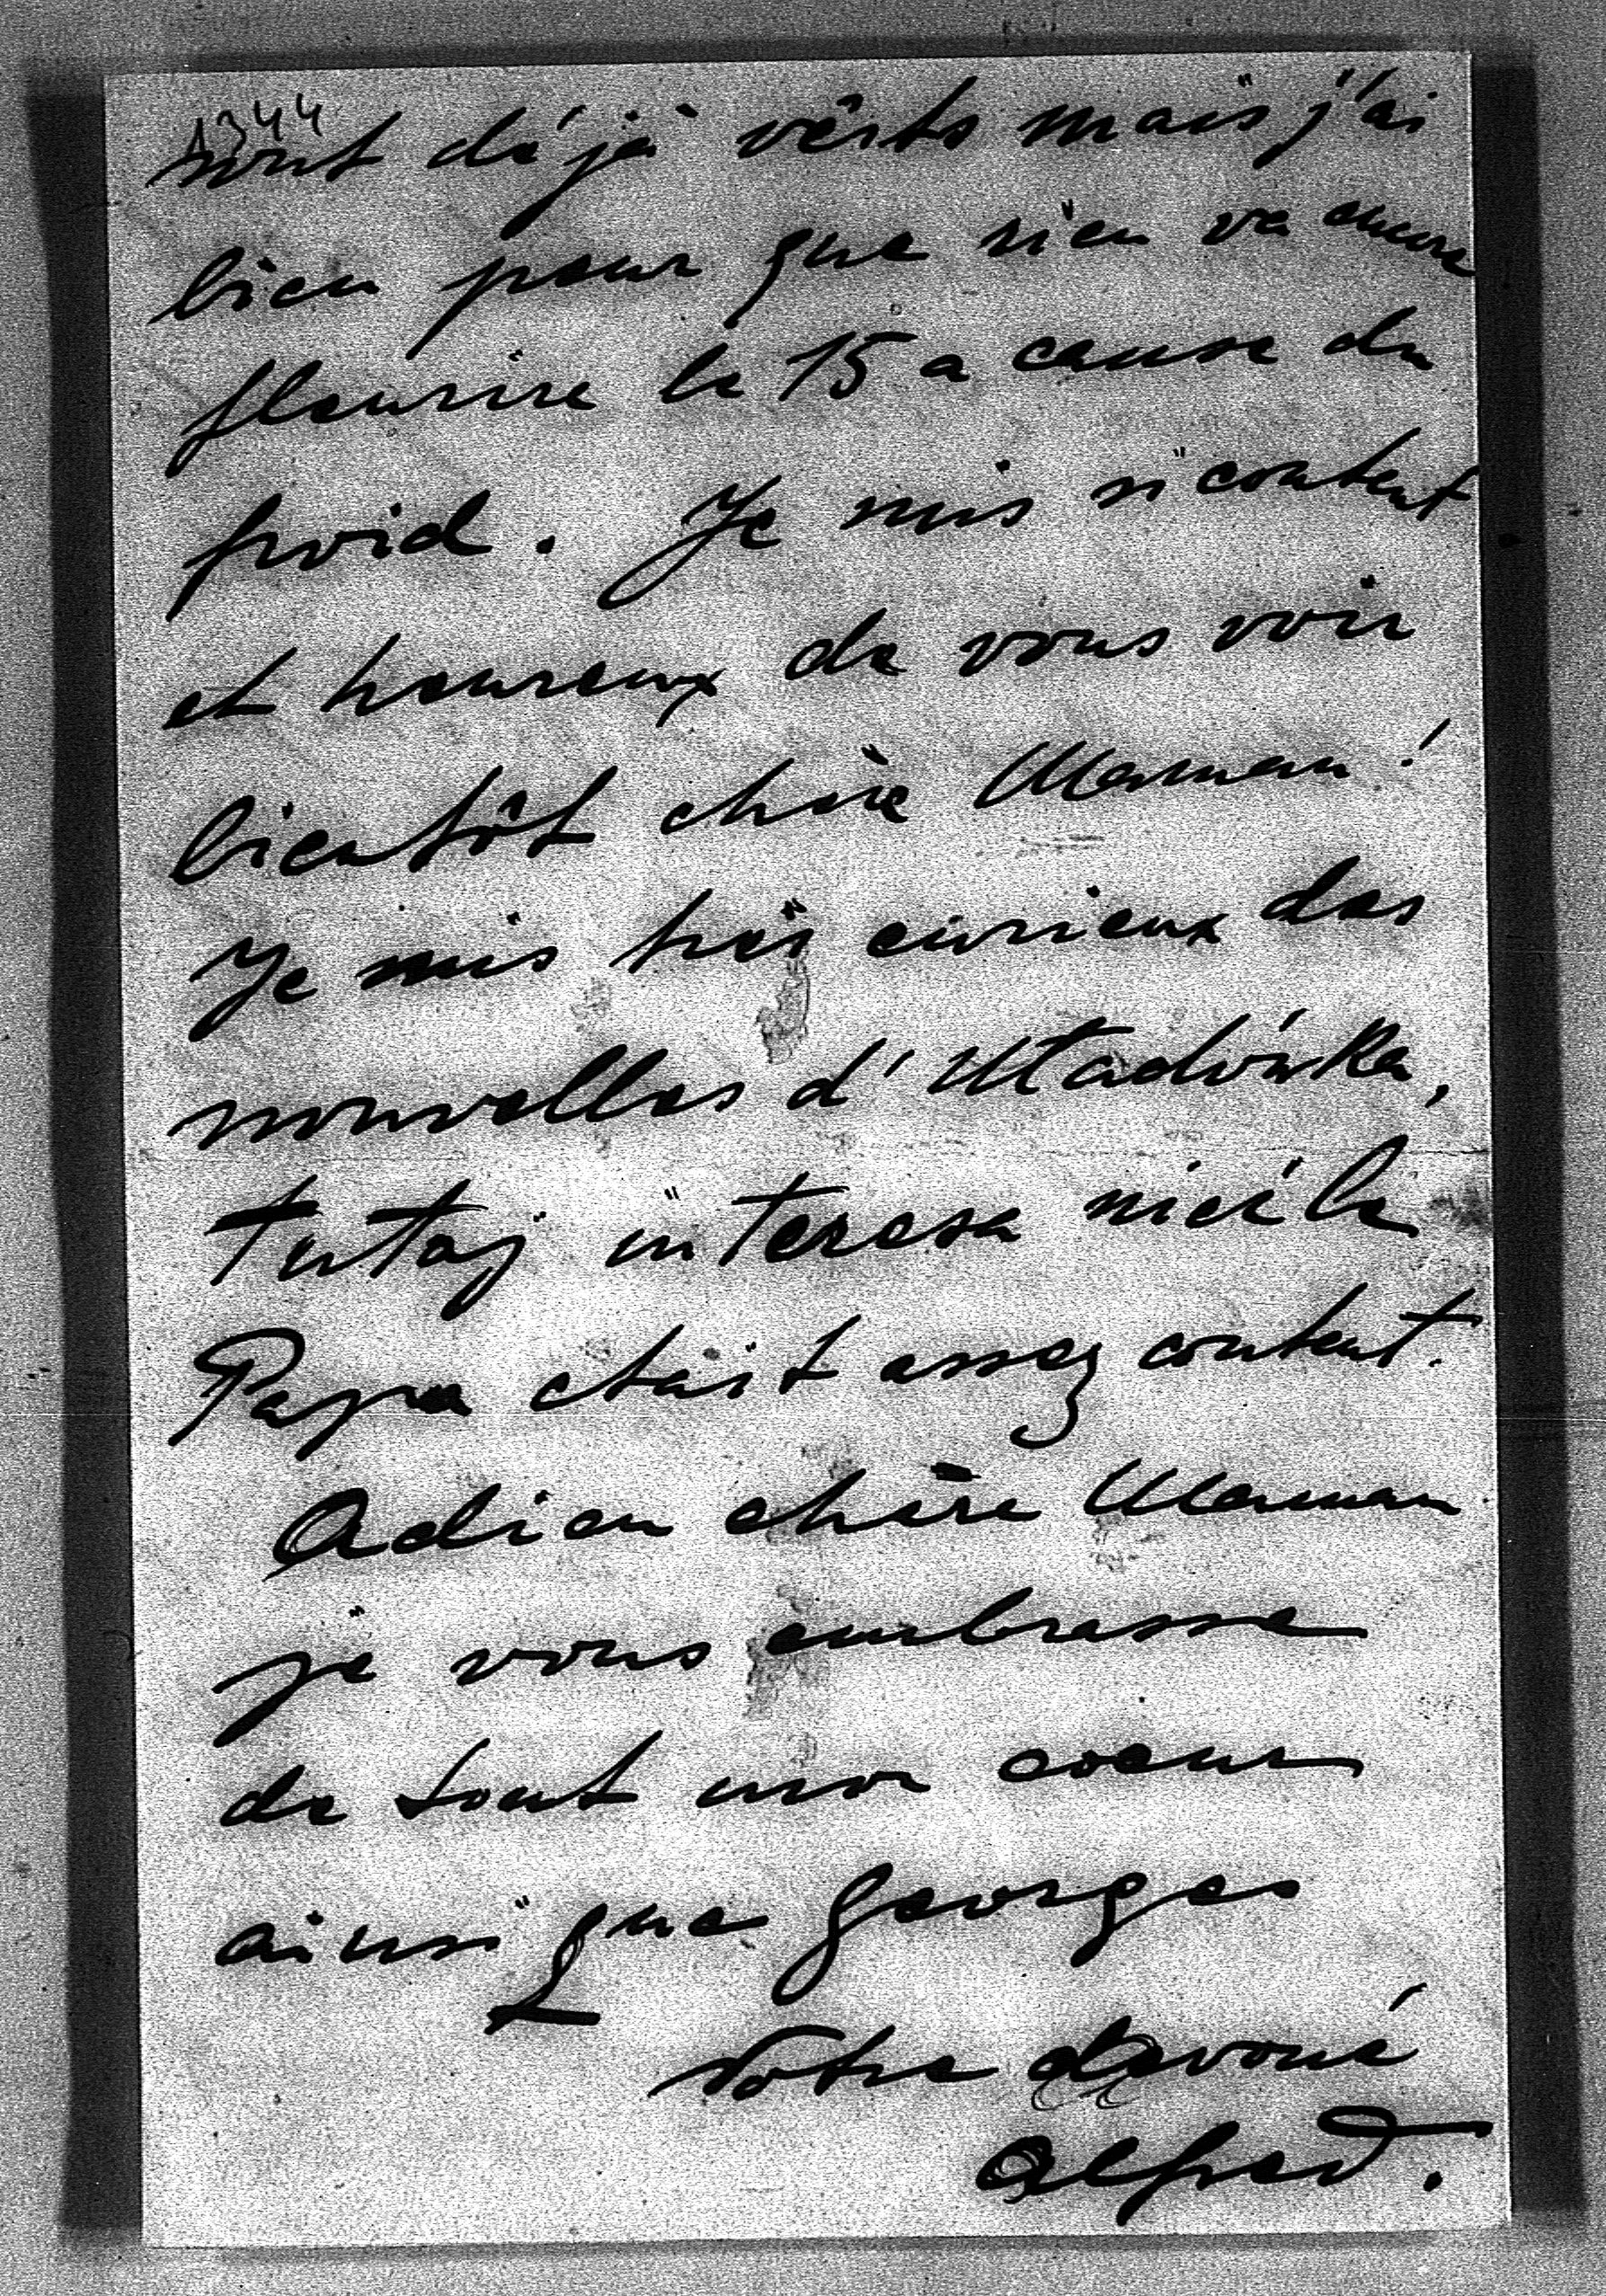 1344
sont déjà vêrts mais j'ai
bien peur que rien va encore
fleurire le 15 a cause du
froid. Je suis si content
et heureux de vous voir
bientôt chère Maman!
Je suis très curieux des
nouvelles d'
tutaj interesa
Papa etait assez content.
Adieu chère Maman
je vous embrasse
de tout mon coeur
ainsi que Georges
Votre devoué
Alfred.